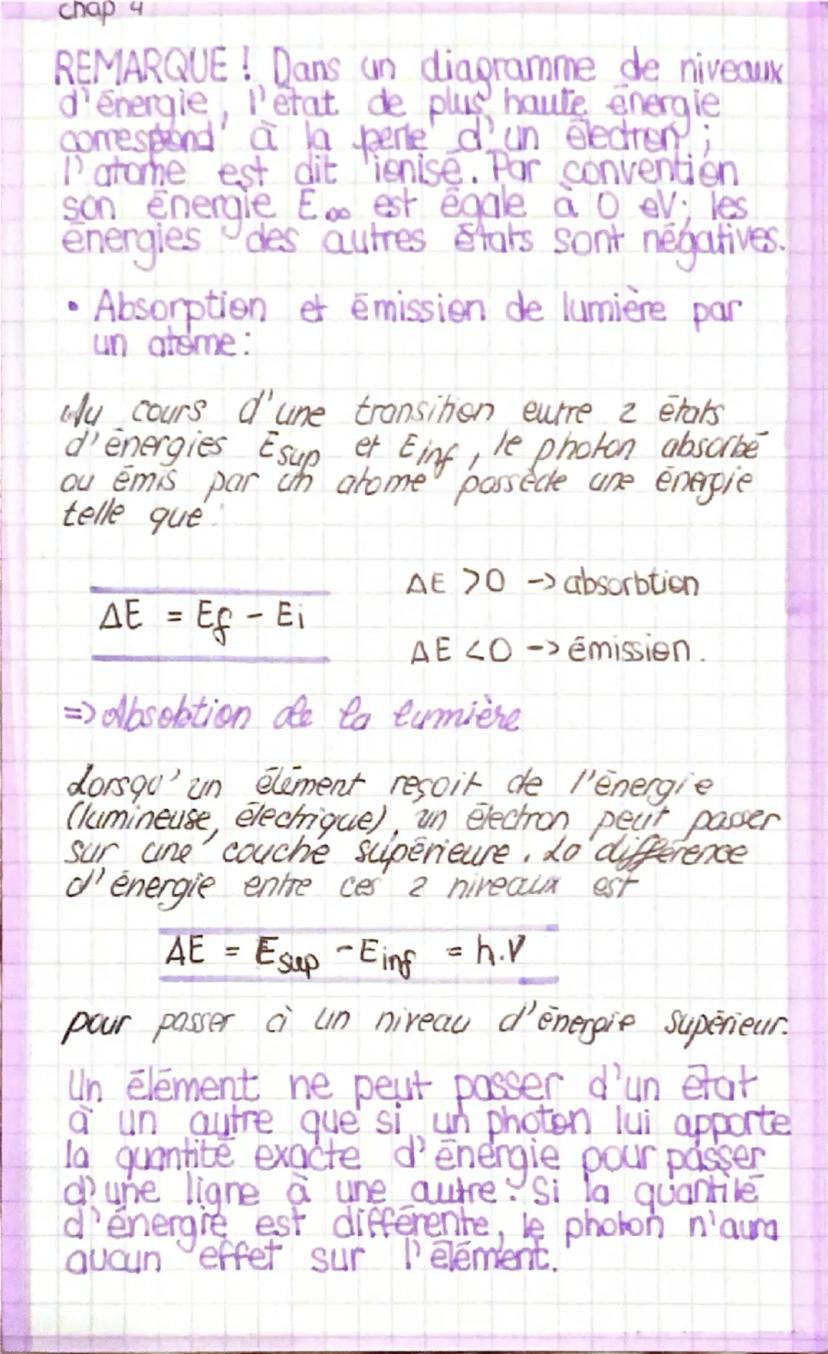 chap 4
REMARQUE ! Dans un diagramme de niveaux
d'énergie, l'état de plus haute énergie
correspond à la perte d'un électron ;
l'atome est dit ionisé. Par convention
son énergie E∞ est égale à 0 eV ; les
énergies des autres états sont négatives.
• Absorption et émission de lumière par
un atome :
Au cours d'une transition entre 2 états
d'énergies Esup et Einf, le photon absorbé
ou émis par un atome possède une énergie
telle que :
ΔE > 0 -> absorbtion
ΔE = Ef - Ei
ΔE < 0 -> émission.
=> Absobtion de la lumière
Lorsqu'un élément reçoit de l'énergie
(lumineuse, électrique), un électron peut passer
sur une couche supérieure. La différence
d'énergie entre ces 2 niveaux est
ΔE = Esup - Einf = h.ν
pour passer à un niveau d'énergie supérieur.
Un élément ne peut passer d'un état
à un autre que si un photon lui apporte
la quantité exacte d'énergie pour passer
d'une ligne à une autre. Si la quantité
d'énergie est différente, le photon n'aura
aucun effet sur l'élément.